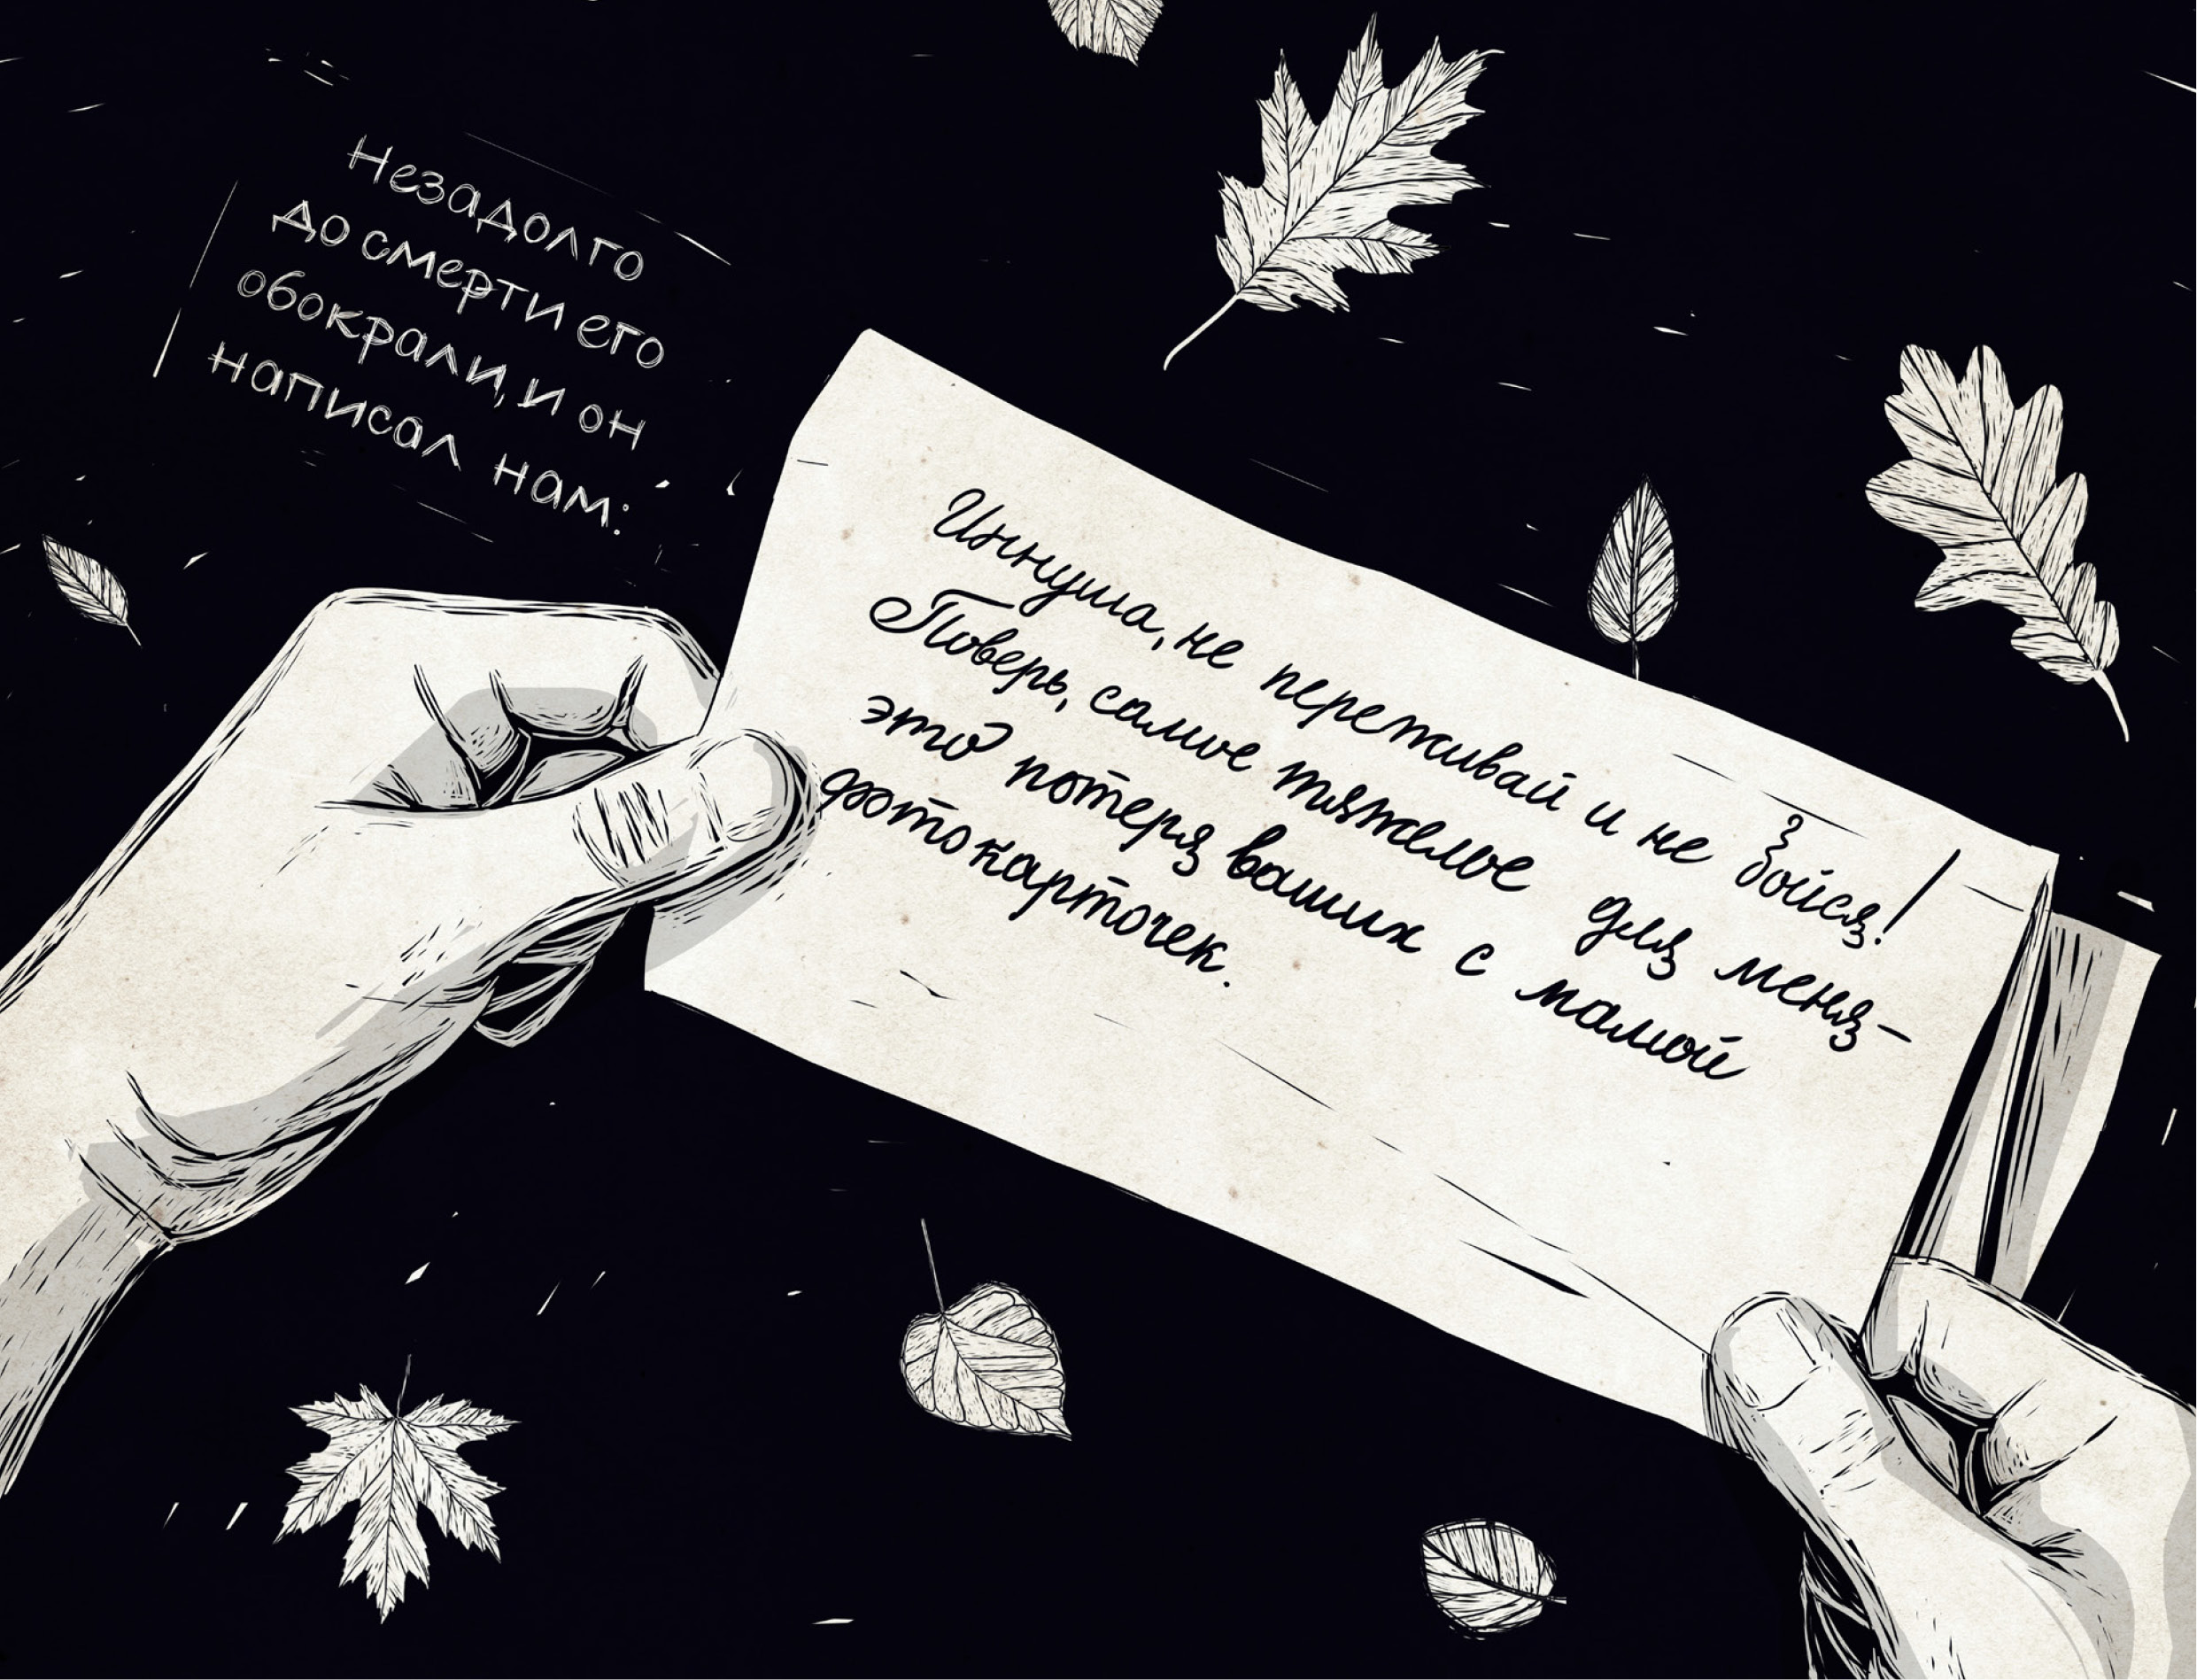 Незадолго
до смерти его
обокрали, и он
написал нам:
Иннуша, не переживай и не бойся!
Поверь, самое тяжелое для меня –
это потеря ваших с мамой
фотокарточек.